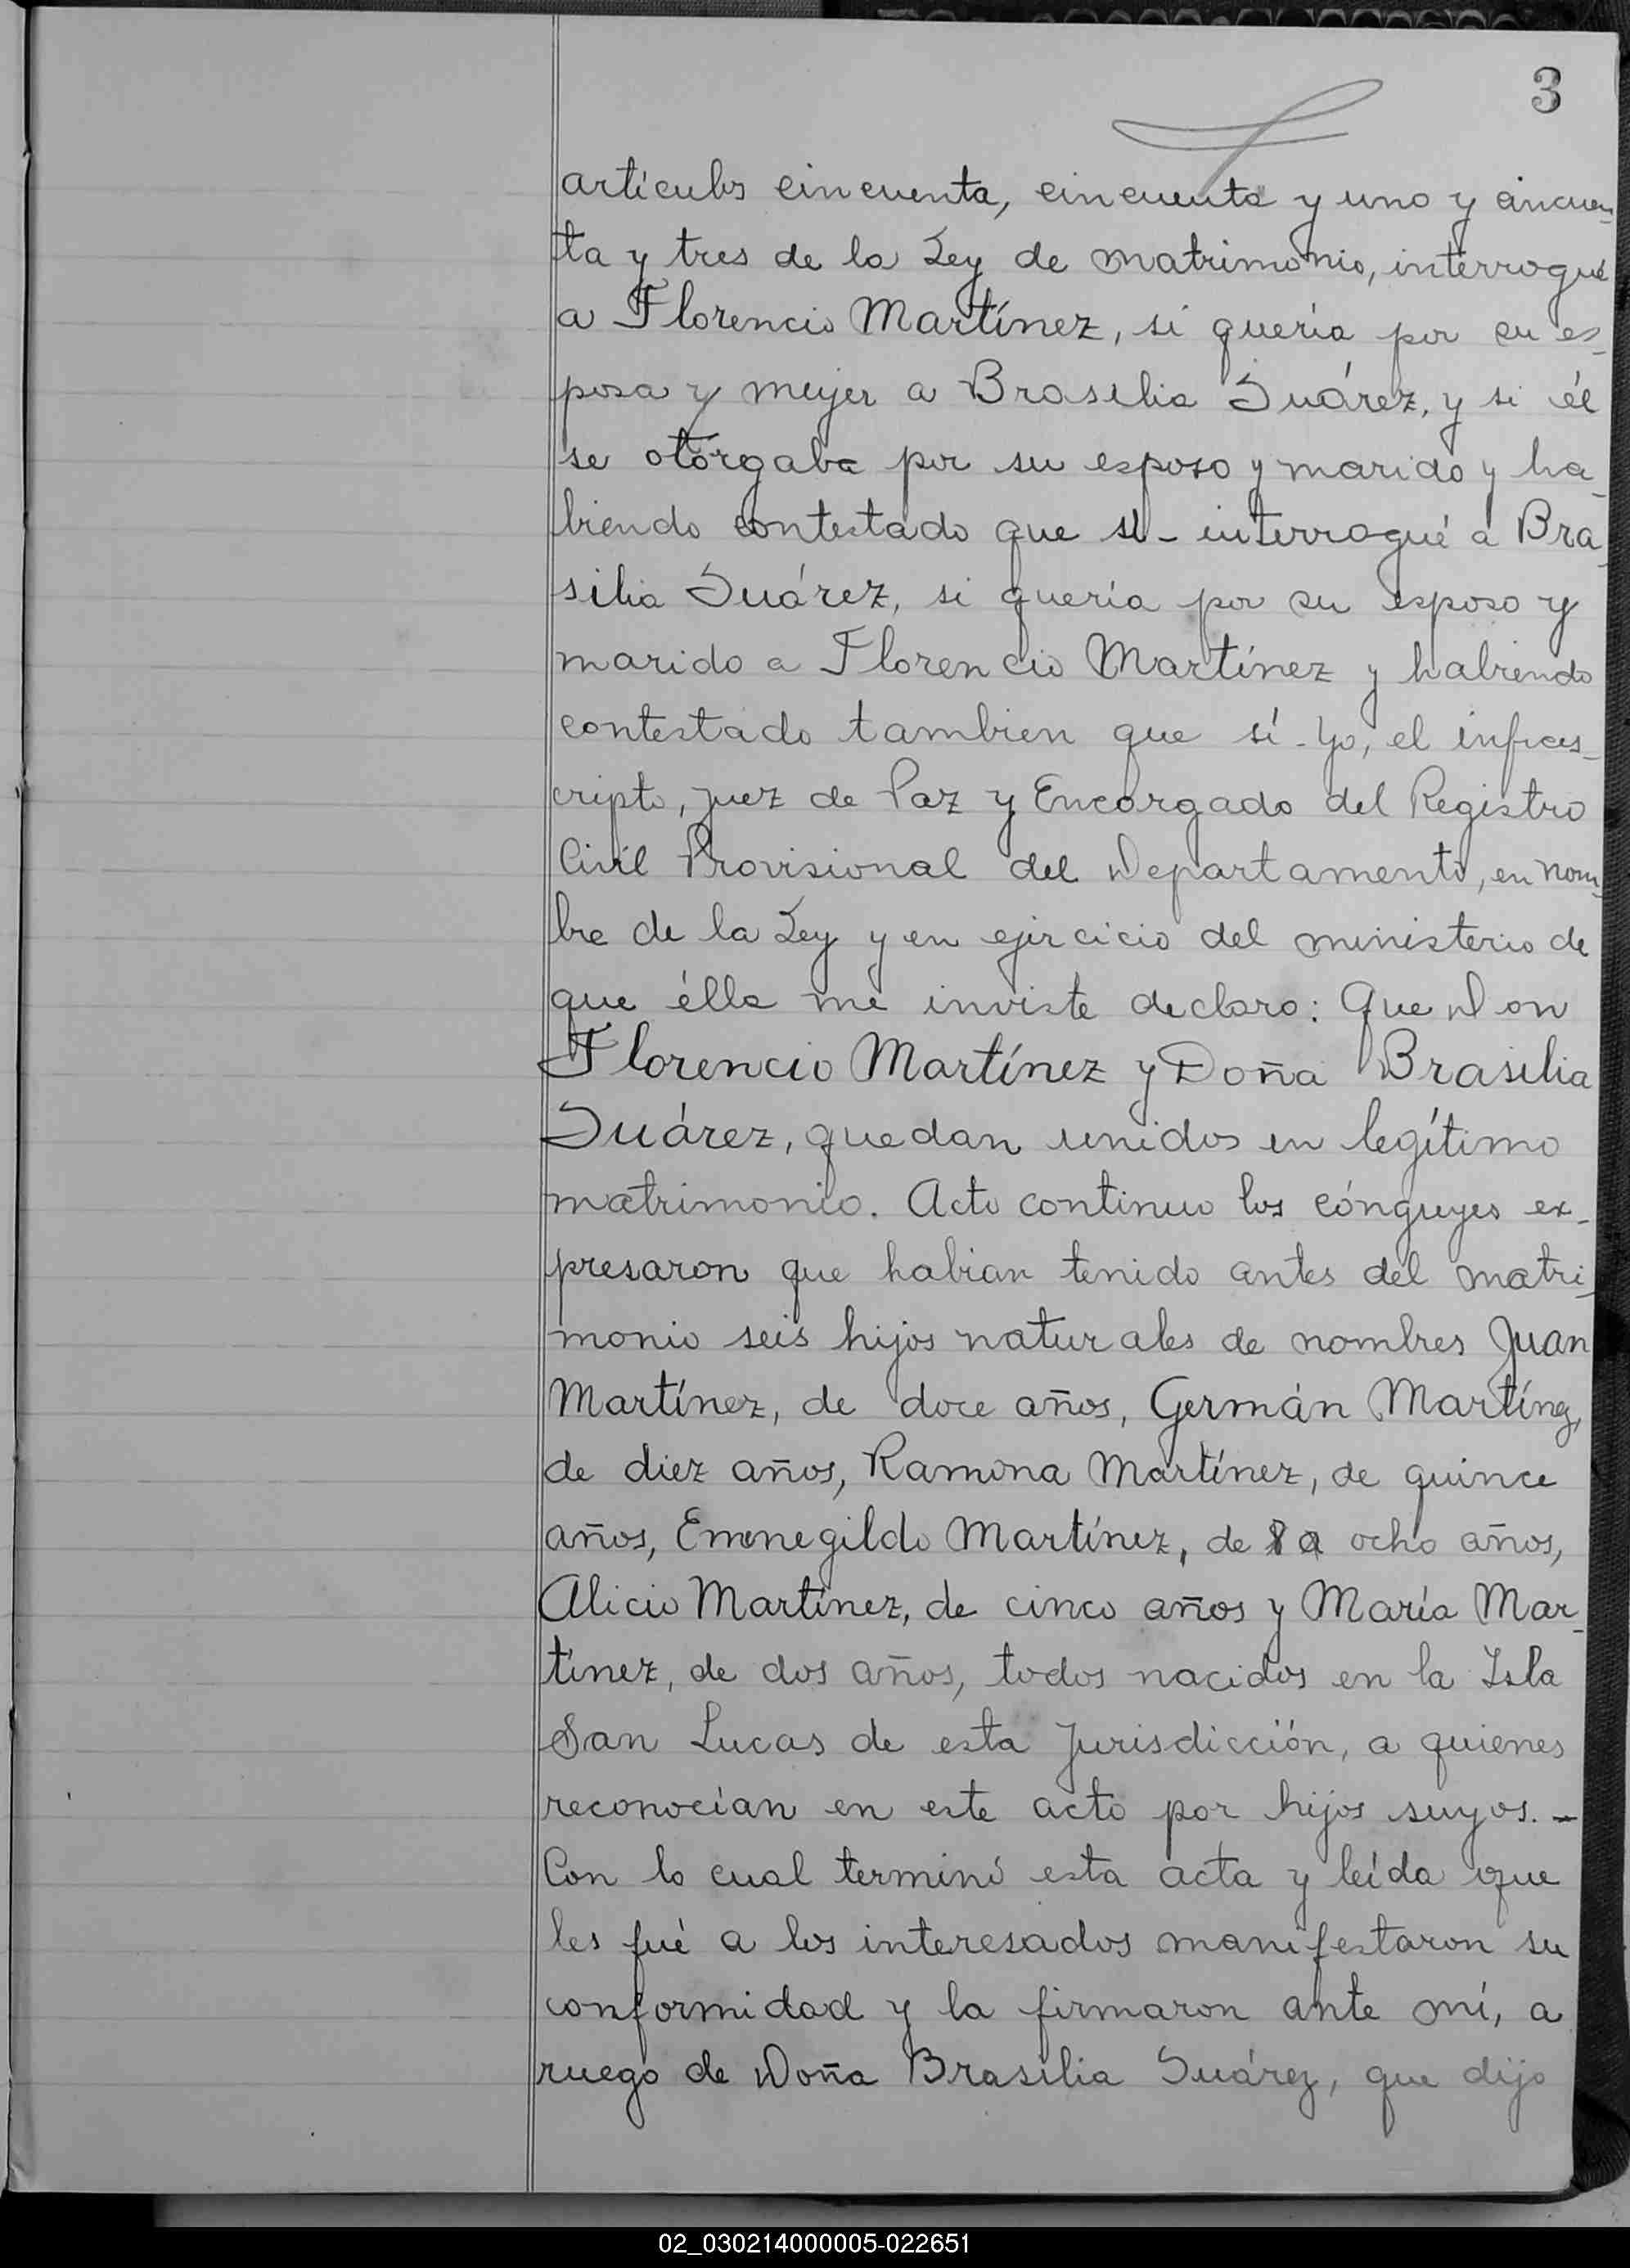 3
articulos cincuenta, cincuenta y uno y cincuen-
ta y tres de la Ley de matrimonio, interrogué
a Florencio Martínez, si quería por su es-
posa y mujer a Brasilia Suárez, y si él
se otorgaba por su esposo y marido y ha-
biendo contestado que sí - interrogué a Bra-
silia Suárez, si quería por su esposo y
marido a Florencio Martínez y habiendo
contestado tambien que sí - Yo, el infraes-
cripto, Juez de Paz y Encargado del Registro
Civil Provisional del Departamento, en nom-
bre de la Ley y en ejercicio del ministerio de
que élla me inviste declaro: Que Don
Florencio Martínez y Doña Brasilia
Suárez, quedan unidos en legítimo
matrimonio. Acto continuo los cónguyes ex-
presaron que habian tenido antes del matri-
monio seis hijos naturales de nombres Juan
Martínez, de doce años, Germán Martínez,
de diez años, Ramona Martínez, de quince
años, Emenegildo Martínez, de 8 a ocho años,
Alicio Martínez, de cinco años y María Mar-
tínez, de dos años, todos nacidos en la Isla
San Lucas de esta Jurisdicción, a quienes
reconocían en este acto por hijos suyos. -
Con lo cual terminó esta acta y leída que
les fué a los interesados manifestaron su
conformidad y la firmaron ante mí, a
ruego de Doña Brasilia Suárez, que dijo
02_030214000005-022651